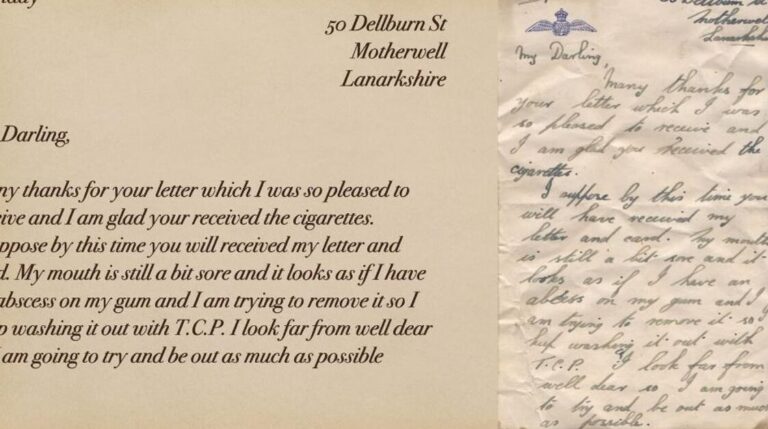 50 Dellburn St
Motherwell
Lanarkshire
Darling,
ny thanks for your letter which I was so pleased to
eive and I am glad your received the cigarettes.
ppose by this time you will received my letter and
d. My mouth is still a bit sore and it looks as if I have
abscess on my gum and I am trying to remove it so I
p washing it out with T.C.P. I look far from well dear
I am going to try and be out as much as possible
Motherwell
Lanarkshire
My Darling,
Many thanks for
your letter which I was
so pleased to receive and
I am glad you received the
cigarettes.
I suppose by this time you
will have received my
letter and card. My mouth
is still a bit sore and it
looks as if I have an
abcess on my gum and I
am trying to remove it so I
keep washing it out with
T.C.P. I look far from
well dear so I am going
to try and be out as much
as possible.